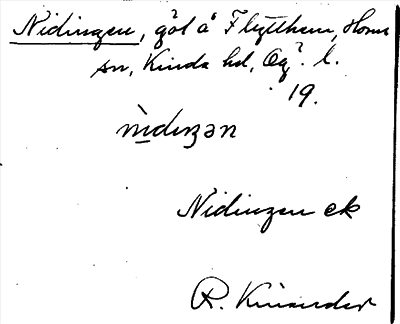 Nidingen, göl å Flytthem, Horns
sn, Kinda hd, Ög. l.
19.
nìdiŋən
Nidingen ek
R. Kinander